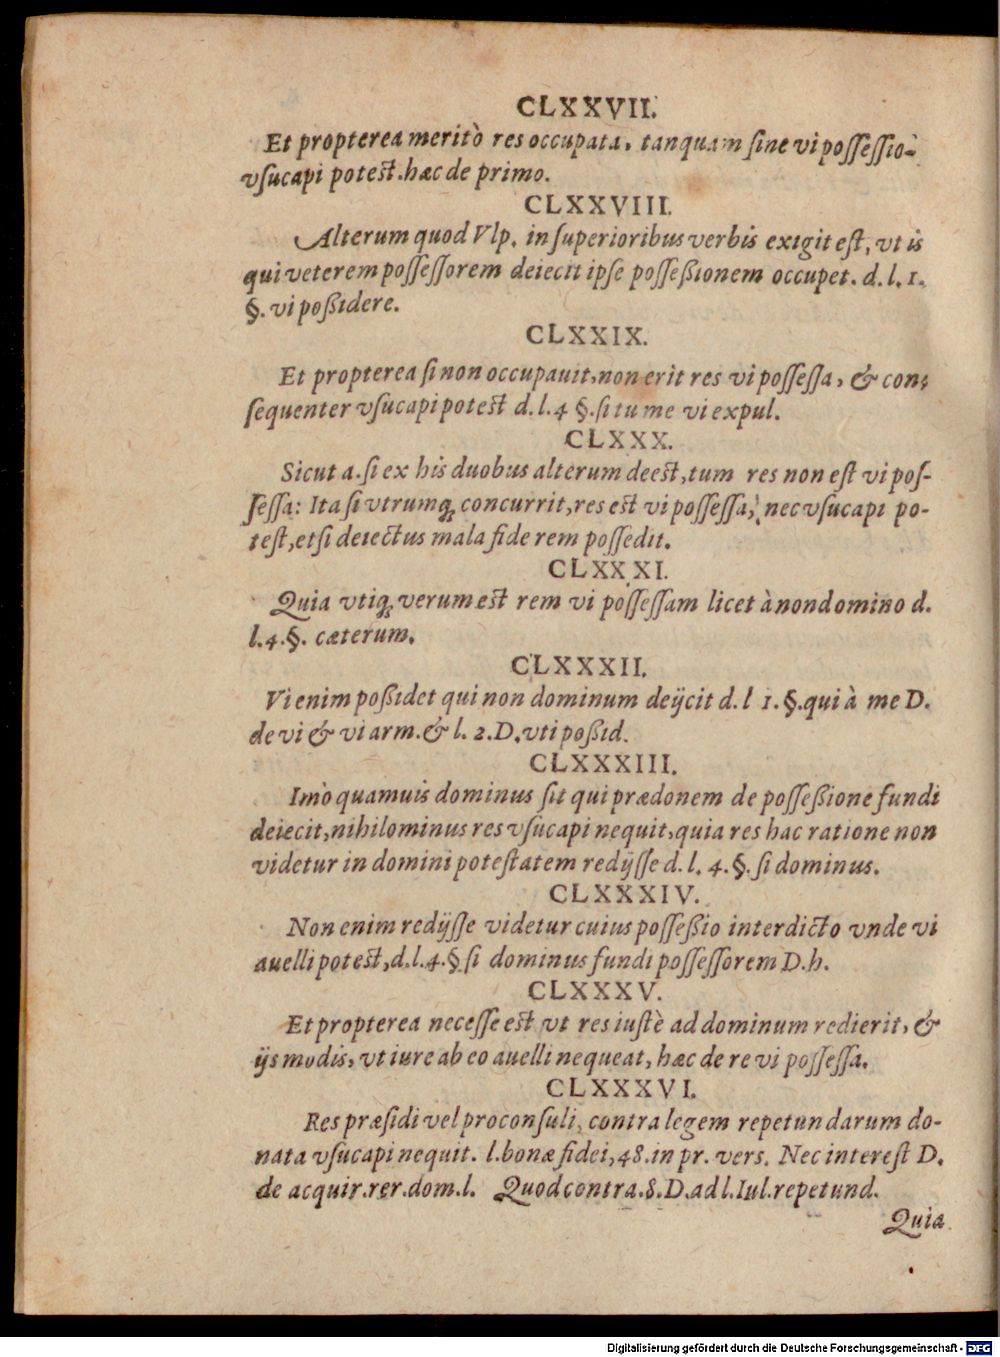 CLXXVII.
Et propterea meritò res occupata, tanquam ſine vi poſſeſſio-
vſucapi poteſt. hæc de primo.
CLXXVIII.
Alterum quod Vlp. in ſuperioribus verbis exigit eſt, vt is
qui veterem poſſeſſorem deiecit ipſe poſſeßionem occupet. d. l. 1.
§. vi poßidere.
CLXXIX.
Et propterea ſi non occupauit, non erit res vi poſſeſſa, & con-
ſequenter vſucapi poteſt d. l. 4 §. ſi tu me vi expul.
CLXXX.
Sicut a. ſi ex his duobus alterum deeſt, tum res non eſt vi poſ-
ſeſſa: Ita ſi vtrumq́; concurrit, res eſt vi poſſeſſa, nec vſucapi po-
teſt, etſi deiectus mala fide rem poſſedit.
CLXXXI.
Quia vtiq́; verum eſt rem vi poſſeſſam licet à non domino d.
l. 4. §. cæterum.
CLXXXII.
Vi enim poßidet qui non dominum deÿcit d. l 1. §. qui à me D.
de vi & vi arm. & l. 2. D. vti poßid.
CLXXXIII.
Imò quamuis dominus ſit qui prædonem de poſſeßione fundi
deiecit, nihilominus res vſucapi nequit, quia res hac ratione non
videtur in domini poteſtatem redÿſſe d. l. 4. §. ſi dominus.
CLXXXIV.
Non enim redÿſſe videtur cuius poſſeßio interdicto vnde vi
auelli poteſt, d. l. 4. §. ſi dominus fundi poſſeſſorem D. h.
CLXXXV.
Et propterea neceſſe eſt vt res iuſtè ad dominum redierit, &
ÿs modis, vt iure ab eo auelli nequeat, hæc de re vi poſſeſſa.
CLXXXVI.
Res præſidi vel proconſuli, contra legem repetundarum do-
nata vſucapi nequit. l. bonæ fidei, 48. in pr. vers. Nec intereſt D.
de acquir. rer. dom. l. Quod contra. 8. D. ad l. Iul. repetund.
Quia
Digitalisierung gefördert durch die Deutsche Forschungsgemeinschaft - DFG